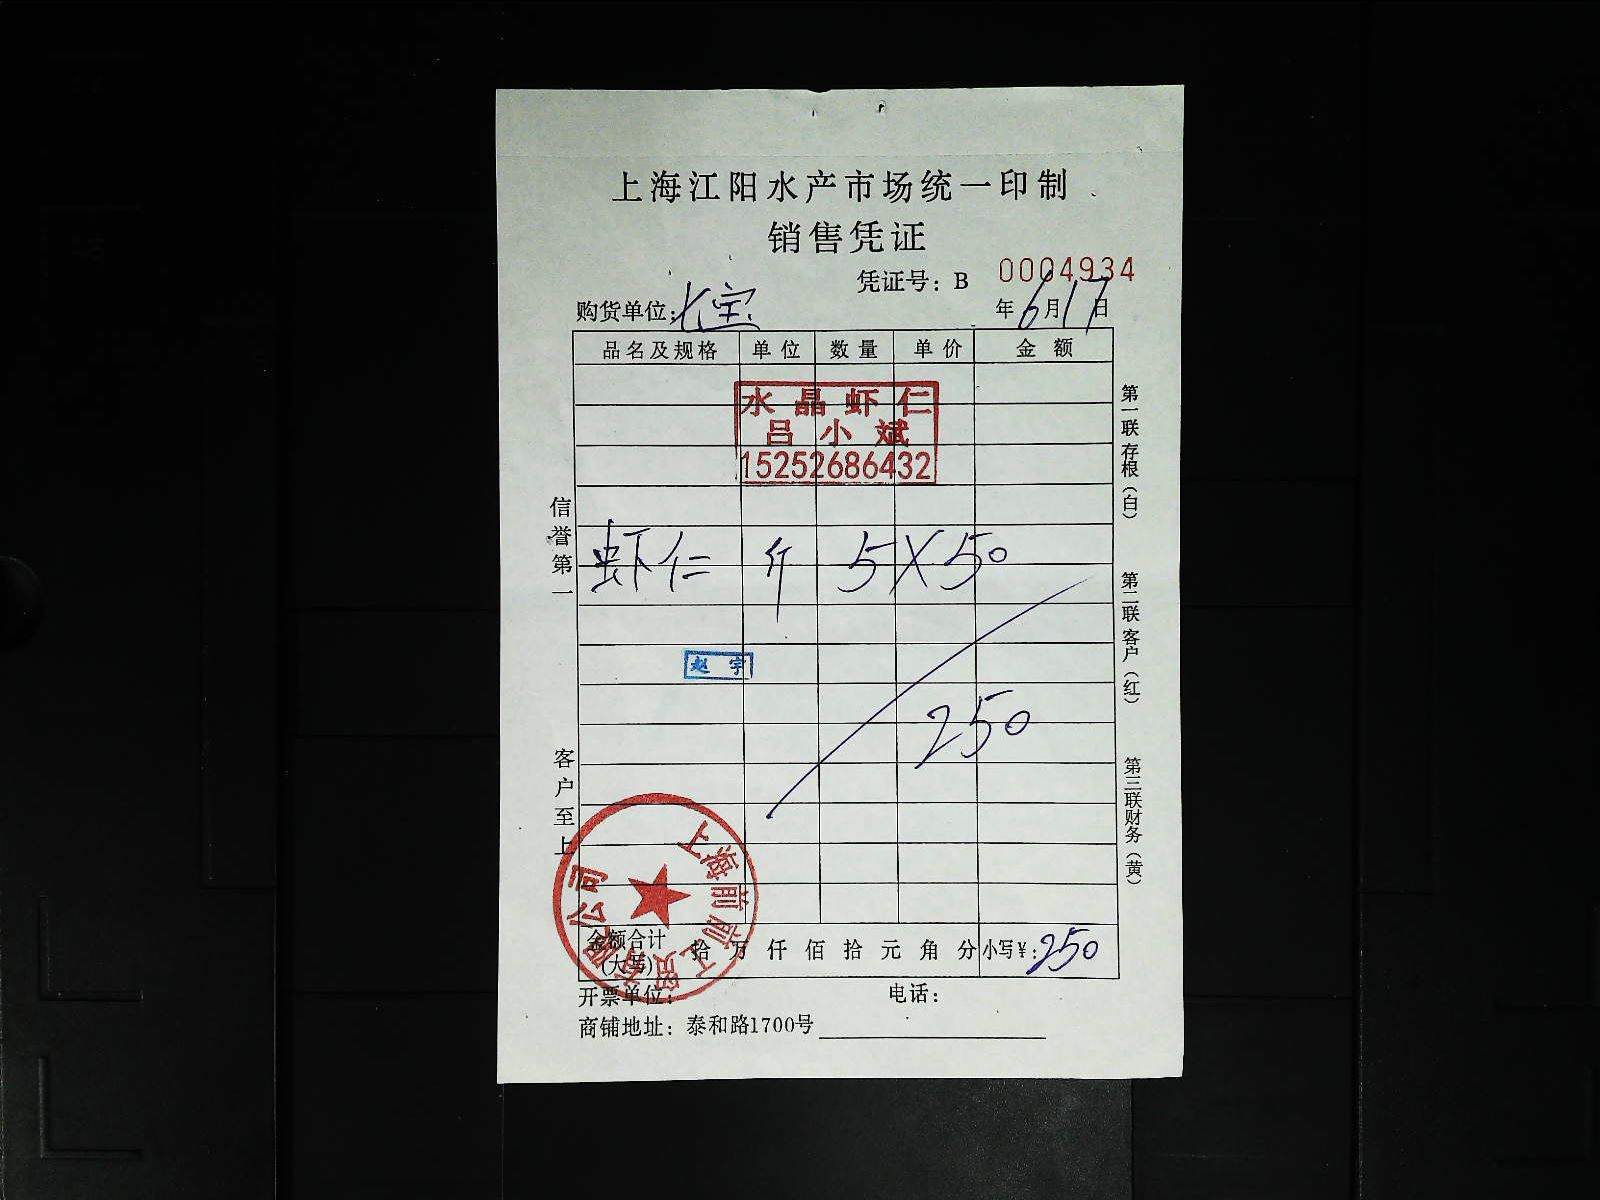 上海江阳水产市场统一印制
销售凭证
凭证号：B 0004934
购货单位：七宝 年6月17日
品名及规格 单位 数量 单价 金额
水晶虾仁
吕小斌
15252686432
虾仁 斤 5×50
赵宇
250
金额合计(大写) 拾万仟佰拾元角分 小写¥：250
开票单位： 电话：
商铺地址：泰和路1700号
信誉第一
客户至上
第一联存根（白）
第二联客户（红）
第三联财务（黄）
上海前前工贸有限公司